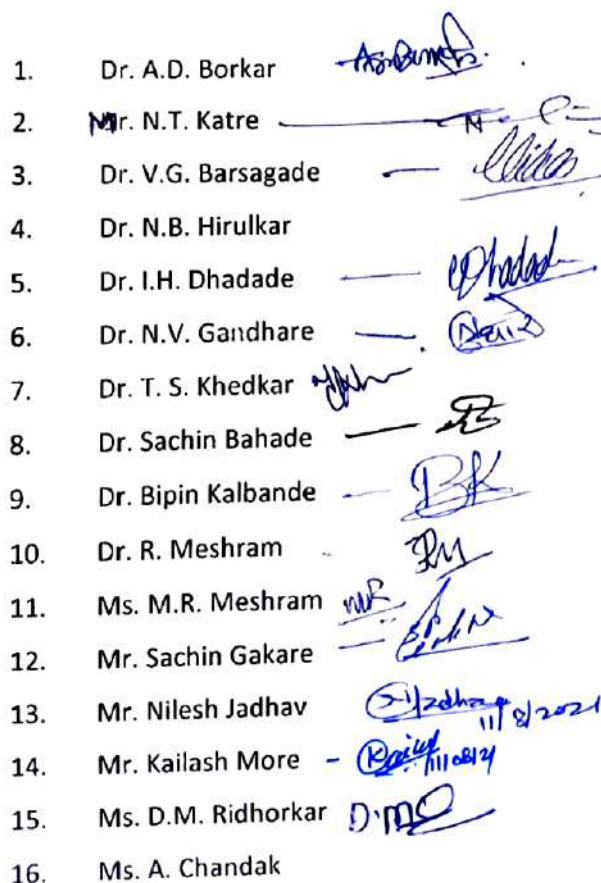 1. Dr. A.D. Borkar
2. Mr. N.T. Katre
3. Dr. V.G. Barsagade
4. Dr. N.B. Hirulkar
5. Dr. I.H. Dhadade Dhadade
6. Dr. N.V. Gandhare
7. Dr. T. S. Khedkar
8. Dr. Sachin Bahade
9. Dr. Bipin Kalbande BK
10. Dr. R. Meshram RM
11. Ms. M.R. Meshram MR
12. Mr. Sachin Gakare
13. Mr. Nilesh Jadhav 11/8/2021
14. Mr. Kailash More 11/08/21
15. Ms. D.M. Ridhorkar D.M
16. Ms. A. Chandak